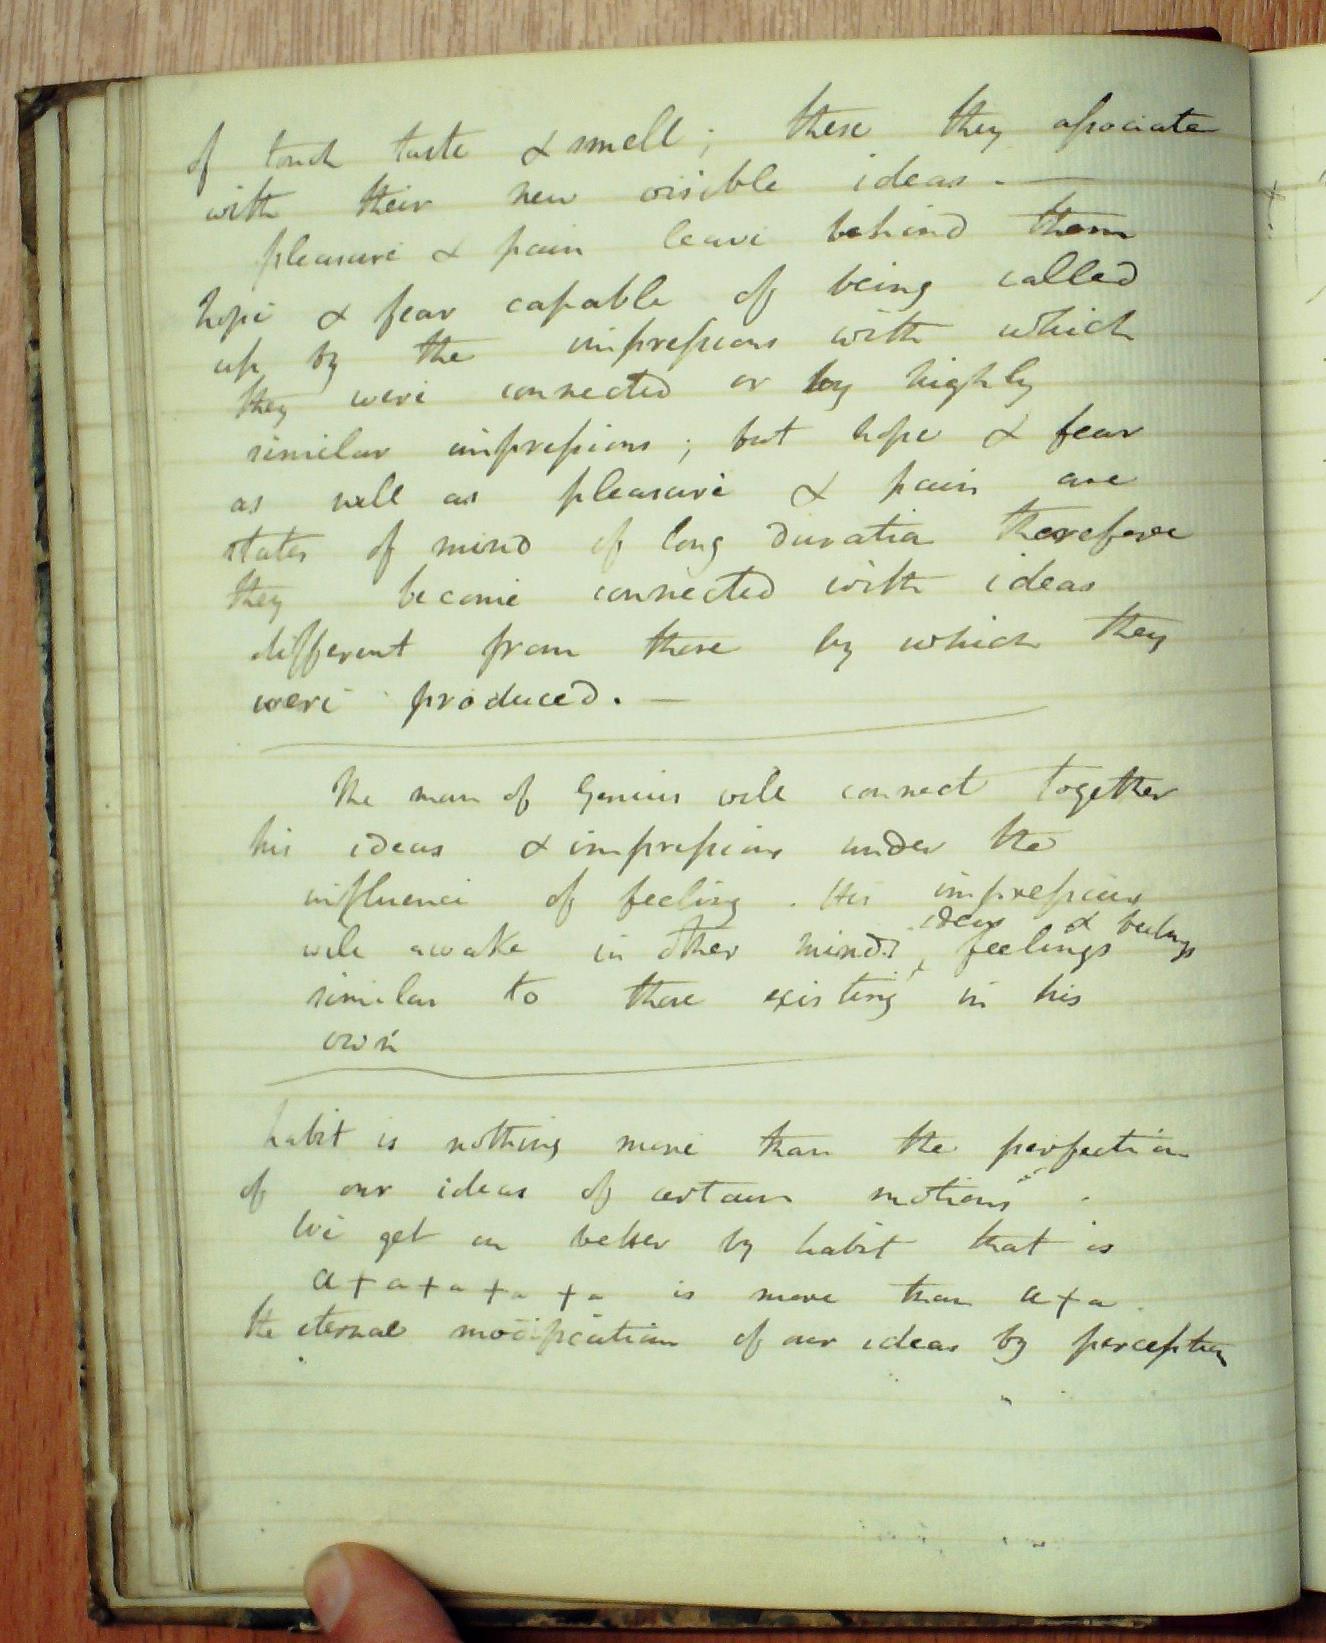 of touch taste & smell; these they associate
with their new visible ideas. —
pleasure & pain leave behind them
hope & fear capable of being called
up by the impressions with which
they were connected or by highly
similar impressions; but hope & fear
as well as pleasure & pain are
states of mind of long duration therefore
they become connected with ideas
different from those by which they
were produced. —
The man of Genius will connect together
his ideas & impressions under the
influence of feeling. His impressions
ideas & feelings
will awake in other minds, feelings
similar to those existing in his
own
habit is nothing more than the perfection
of our ideas of certain motions.
We get on better by habit that is
a + a + a + a + a is more than a + a.
the eternal modification of our ideas by perception